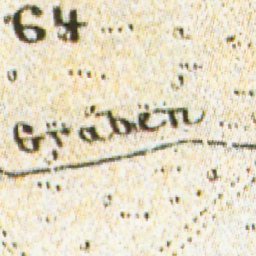 64
Graben